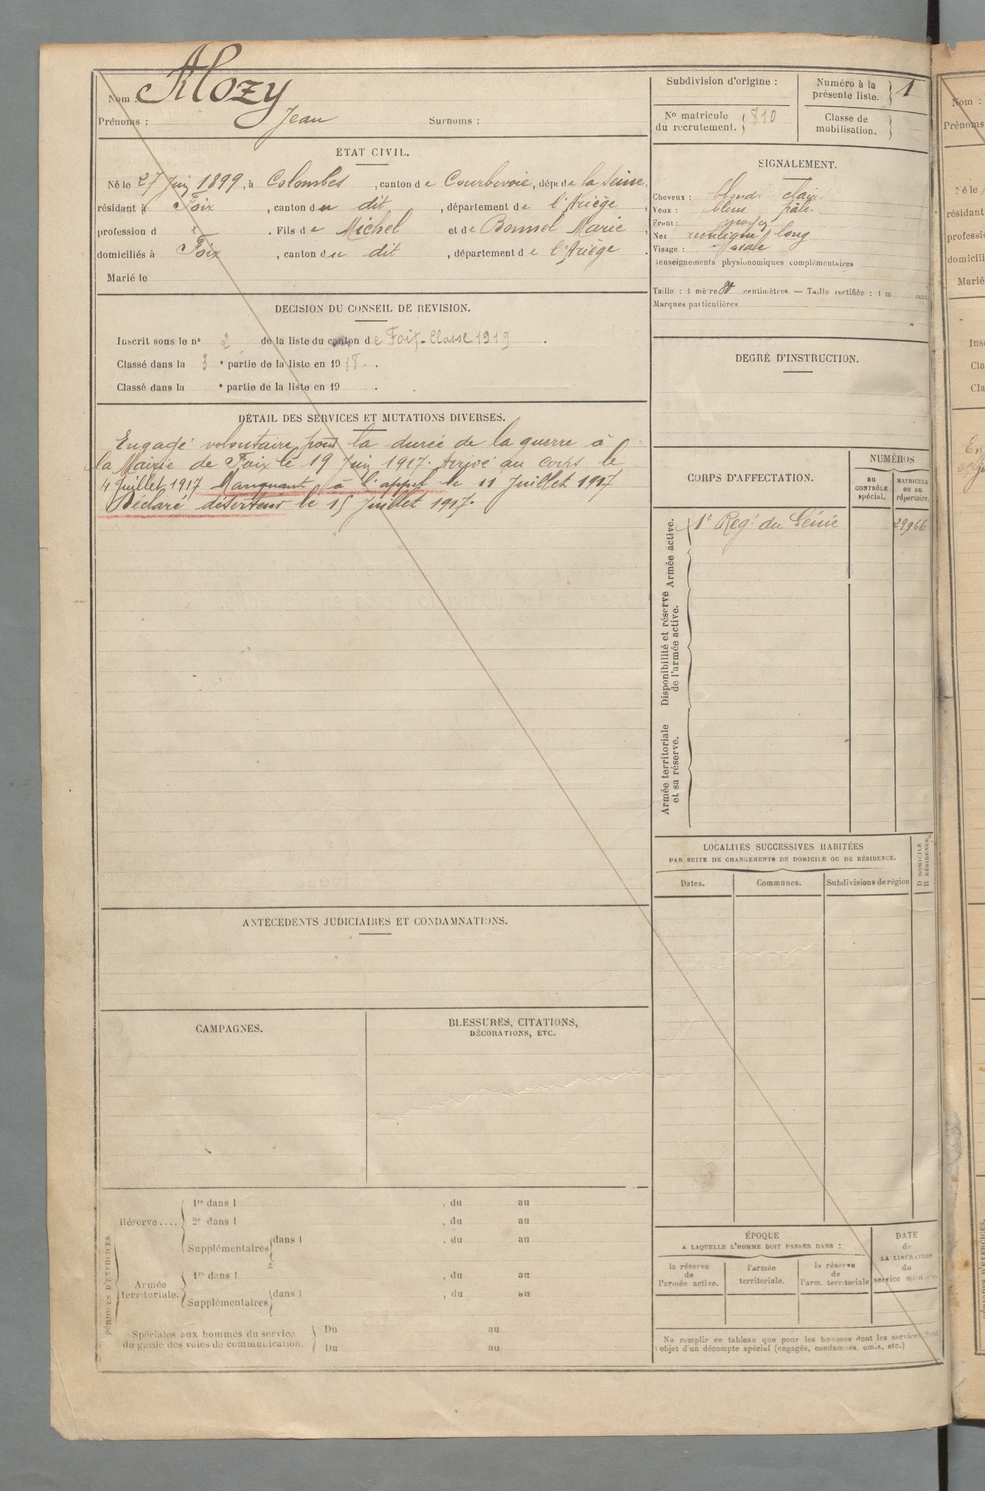 Nom : Alozy
Prénoms : Jean Surnoms :
ÉTAT CIVIL.
Né le 27 Juin 1899, à Colombes, canton de Courbevoie, dépt de la Seine,
résidant à Foix, canton du dit, département de l'Ariège,
profession d . Fils de Michel et de Bonnel Marie,
domiciliés à Foix, canton du dit, département de l'Ariège.
Marié le
DECISION DU CONSEIL DE REVISION.
Inscrit sous le n° 2 de la liste du canton de Foix. Classe 1919.
Classé dans la 3e partie de la liste en 1918.
Classé dans la e partie de la liste en 19 .
DÉTAIL DES SERVICES ET MUTATIONS DIVERSES.
Engagé volontaire pour la durée de la guerre à
la Mairie de Foix le 19 Juin 1917. Arrivé au corps le
4 Juillet 1917 Manquant à l'appel le 11 Juillet 1917
Déclaré déserteur le 15 Juillet 1917.
ANTÉCÉDENTS JUDICIAIRES ET CONDAMNATIONS.
CAMPAGNES.
BLESSURES, CITATIONS,
DÉCORATIONS, ETC.
PÉRIODES D'EXERCICES.
Réserve....
1re dans l , du au
2e dans l , du au
Supplémentaires dans l , du au
Armée
territoriale.
1re dans l , du au
Supplémentaires dans l , du au
Spéciales aux hommes du service
de garde des voies de communication.
Du au
Du au
Subdivision d'origine :
Numéro à la
présente liste. 1
No matricule
du recrutement. 810
Classe de
mobilisation.
SIGNALEMENT.
Cheveux : blond clair
Yeux : bleus pâle
Front : moyen
Nez rectiligne long
Visage : ovale
Renseignements physionomiques complémentaires
Taille : 1 mètre centimètres. — Taille rectifiée : 1 m cent.
Marques particulières
DEGRÉ D'INSTRUCTION.
CORPS D'AFFECTATION.
NUMÉROS
AU
CONTRÔLE
spécial.
MATRICULE
OU AU
répertoire.
Armée active.
1er Regt du Génie 29966
Disponibilité et réserve
de l'armée active.
Armée territoriale
et sa réserve.
LOCALITÉS SUCCESSIVES HABITÉES
PAR SUITE DE CHANGEMENTS DE DOMICILE OU DE RÉSIDENCE.
Dates.
Communes.
Subdivisions de région
D DOMICILE
R RÉSIDENCE.
ÉPOQUE
A LAQUELLE L'HOMME DOIT PASSER DANS :
la réserve
de
l'armée active.
l'armée
territoriale.
la réserve
de
l'arm. territoriale
DATE
de
LA LIBÉRATION
du
service militaire
Ne remplir ce tableau que pour les hommes dont les services font
l'objet d'un décompte spécial (engagés, condamnés, omis, etc.)